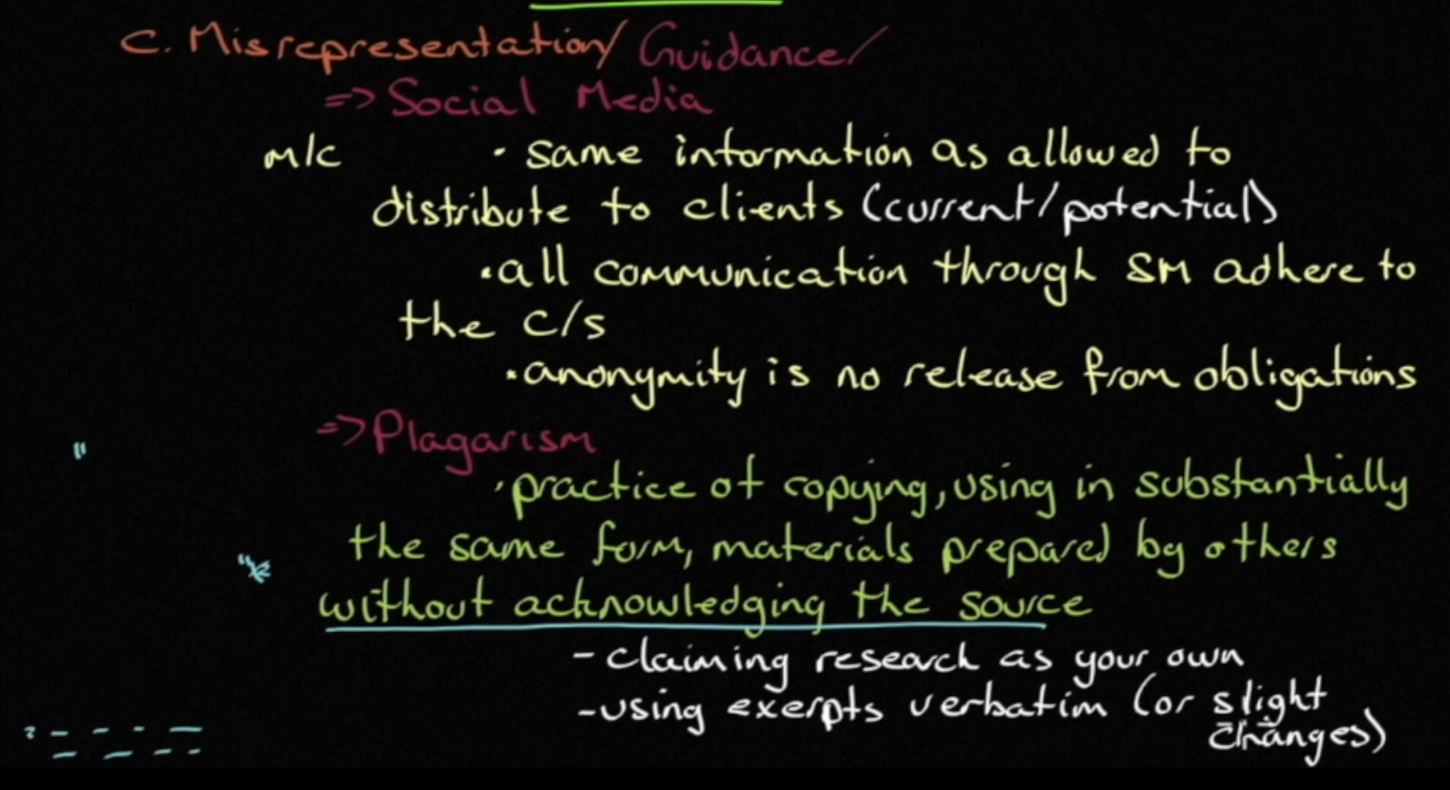 C. Misrepresentation/ Guidance/
=> Social Media
m/c · same information as allowed to
distribute to clients (current/potential)
· all communication through SM adhere to
the C/S
· anonymity is no release from obligations
=> Plagarism
· practice of copying, using in substantially
the same form, materials prepared by others
without acknowledging the source
- claiming research as your own
- using exerpts verbatim (or slight
changes)